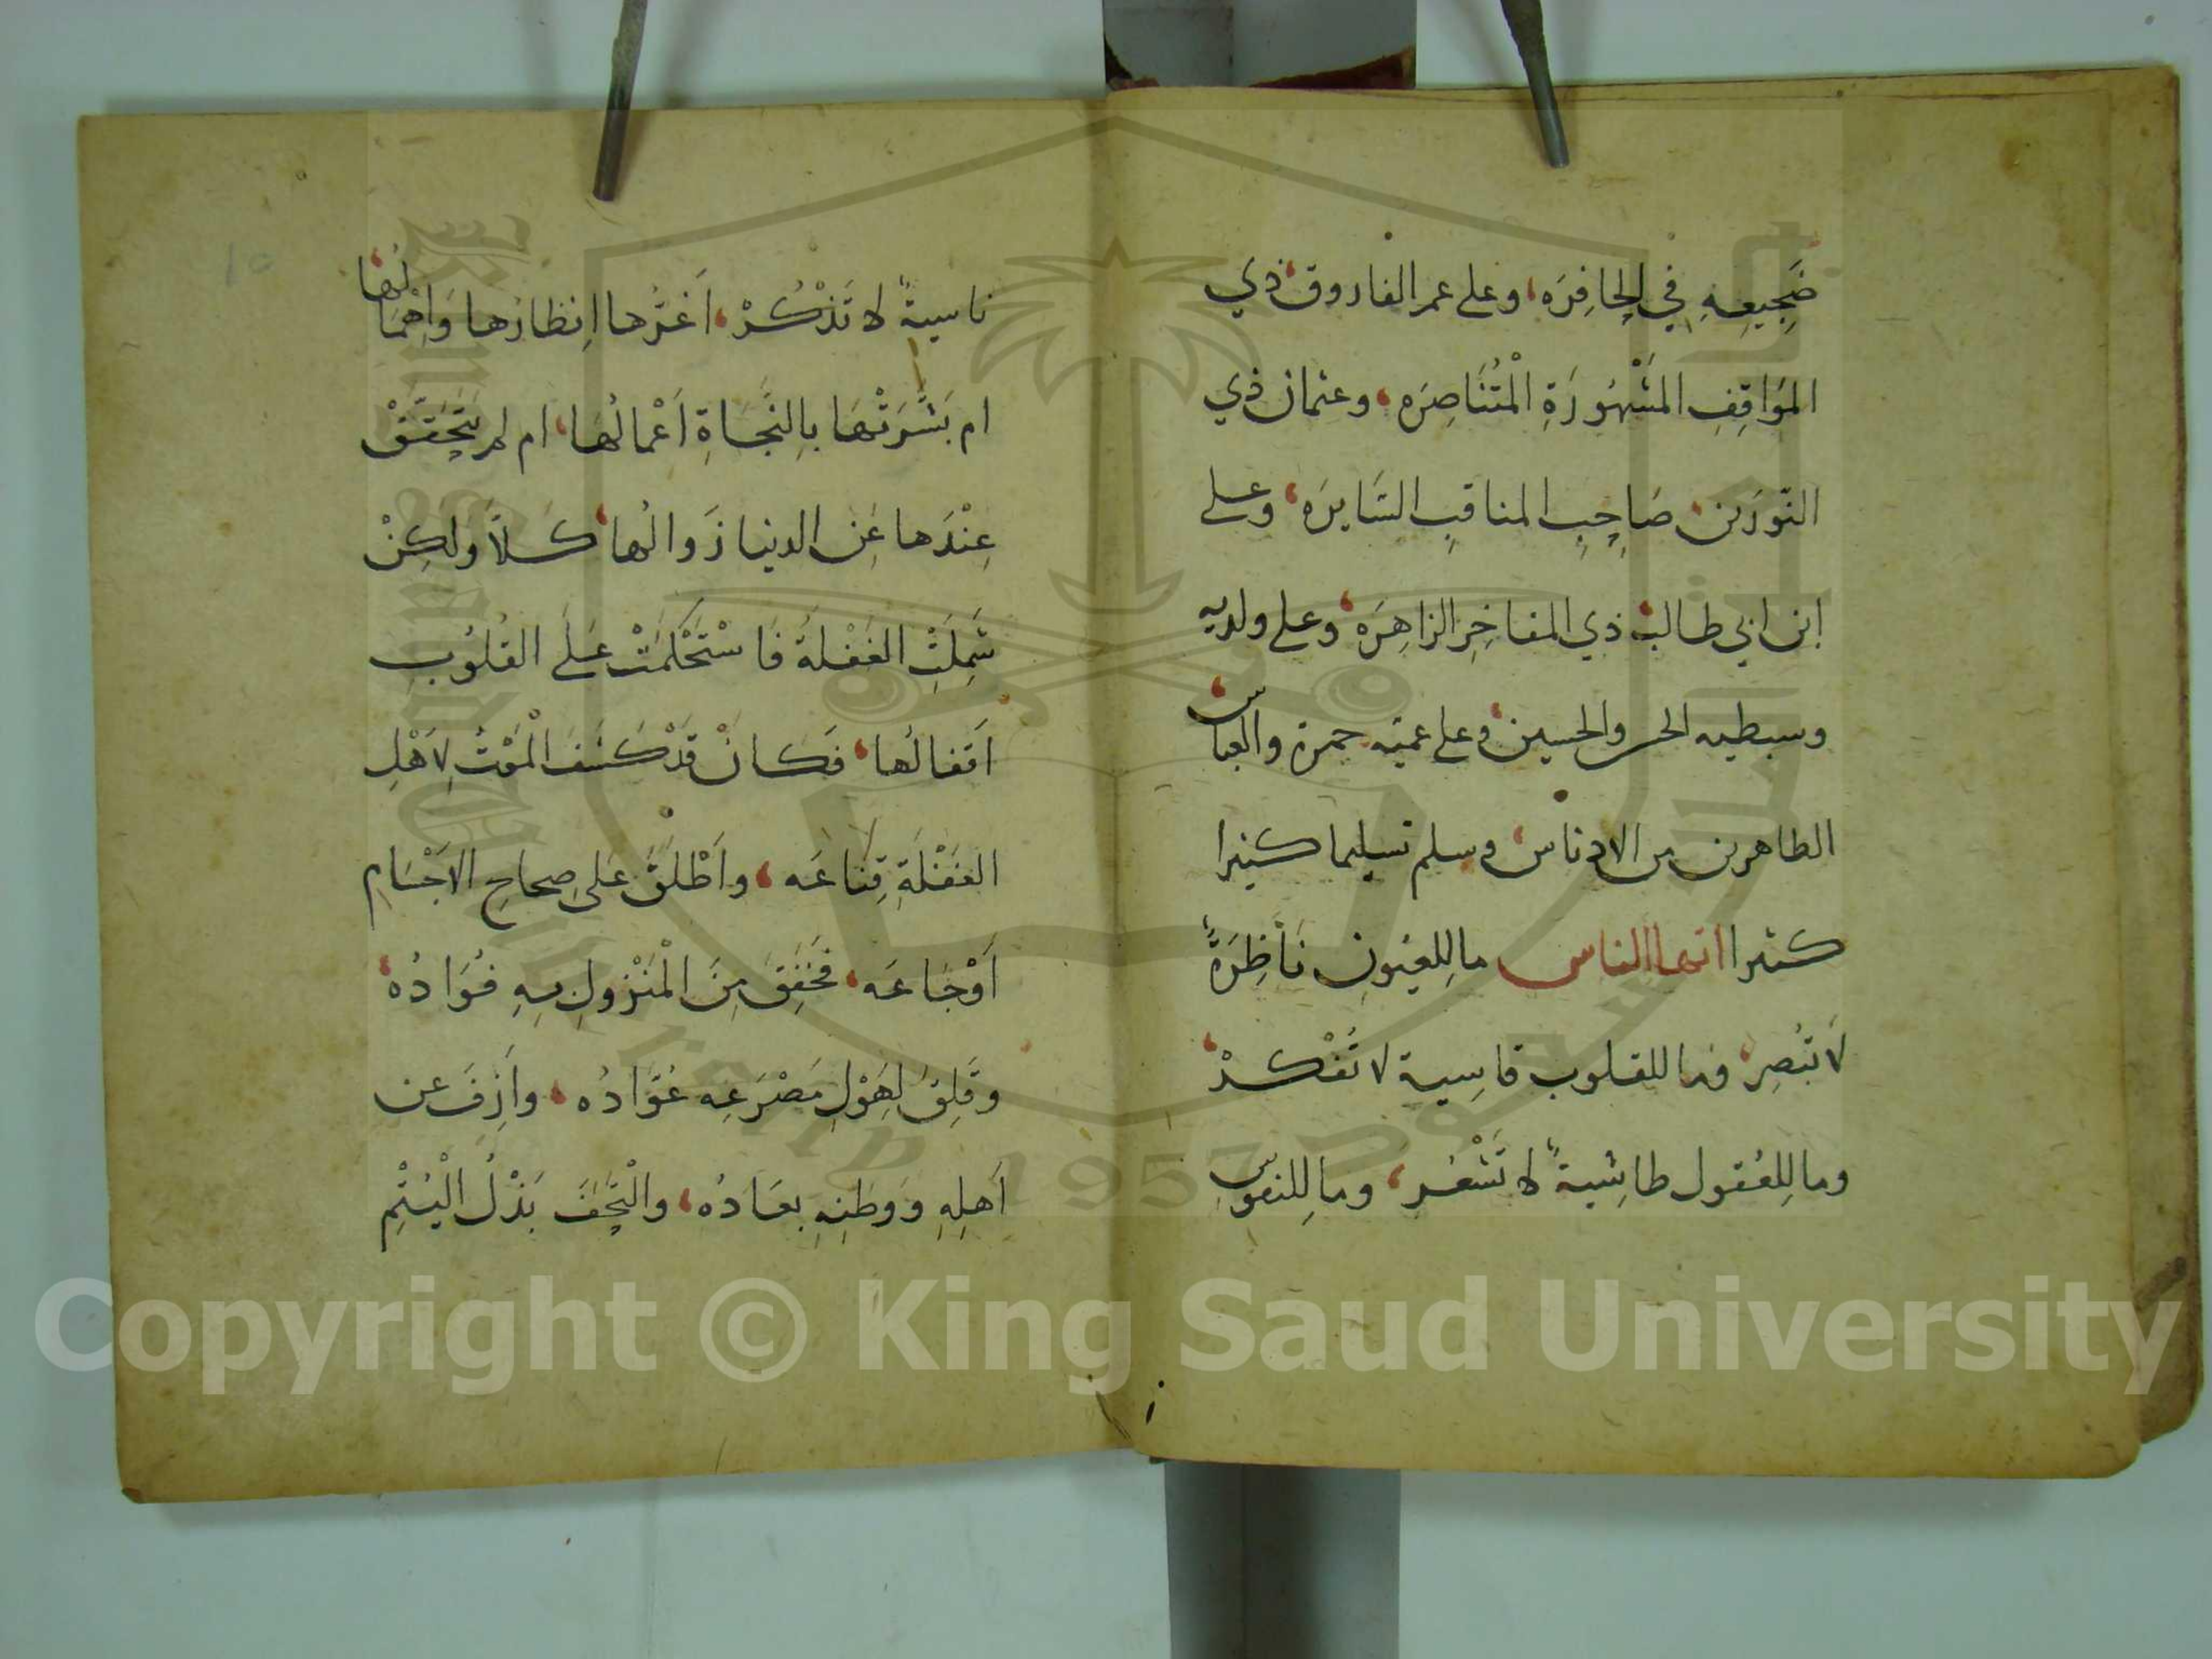 ضَجِيعِهِ فِي الحَافِرَه، وعلى عمر الفاروق، ذي
المَوَاقِفِ المَشْهُورَةِ الْمُتَنَاصِرَه، وعثمان ذي
النّورَين، صَاحِبِ المناقبِ السَّايرَه، وعلى
ابن ابي طالب، ذي المفاخِرِ الزاهِرَه، وعلى ولديه
وسبطيه الحسن والحسين، وعلى عميه حمزة والعباس،
الطاهرين من الادناس، وسلم تسليما كثيرا
كثيرا ايها الناس ما لِلعُيُونِ نَاظِرَةً
لَا تُبْصِر، وما للقلوب قاسِية لا تُفْكرْ،
وما لِلعُقول طائِشية لا تَشْعُر، وما لِلنفوس
ناسيةً لا تَذْكُرْ، اَغَرَّها اِنظارُها وَاِهْمَالُها،
ام بَشَّرَتْهَا بِالنَّجَاةِ اَعْمالُهَا، ام لم يَتَحَقَّقْ
عِنْدَها عَنِ الدنيا زَوالُها، كَلَّا وَلكِنْ
شَمِلَتِ الغَفْلَةُ فَاسْتَحْكَمَتْ عَلَى القُلُوبِ
اَقفالُها، فَكَانْ قَدْ كَشَفَ الْمَوْتُ لِاَهْلِ
الغَفْلَةِ قِنَاعَه، واَطْلَقَ عَلى صِحاحِ الاَجْسَام
اَوْجَاعَه، فَخَفَقَ مِنَ الْمَنْزولِ بِهِ فُوَادُه،
وقَلِقَ لِهَوْلِ مَصْرَعِه عُوَّادُه، واَزِفَ عن
اَهلِهِ وَوَطنِهِ بعَادُه، والْتَحَفَ بَذْلُ الْيُتْمِ
Copyright © King Saud University
1957